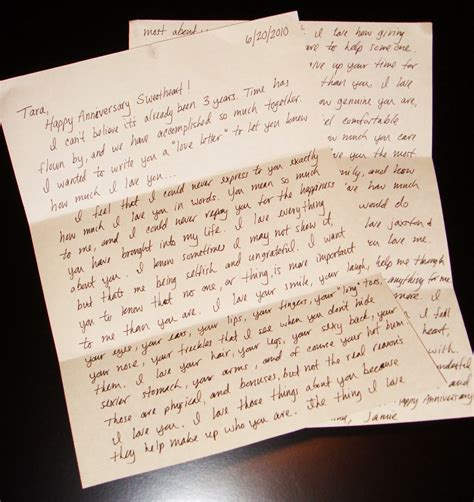 6/20/2010
Tara,
Happy Anniversary Sweetheart!
I can't believe its already been 3 years. Time has
flown by, and we have accomplished so much together.
I wanted to write you a "love letter" to let you know
how much I love you...
I feel that I could never express to you exactly
how much I love you in words. You mean so much
to me, and I could never repay you for the happiness
you have brought into my life. I love everything
about you. I know sometimes I may not show it,
but thats me being selfish and ungrateful. I want
you to know that no one, or thing, is more important
to me than you are. I love your smile, your laugh,
your eyes, your ears, your lips, your fingers, your "long" toes,
your nose, your freckles that I see when you don't hide
them. I love your hair, your legs, your sexy back, your
sexier stomach, your arms, and of course your hot bum.
Those are physical, and bonuses, but not the real reasons
I love you. I love those things about you because
they help make up who you are. The thing I love
most about
I love how giving
are to help someone
give up your time for
than you. I love
how genuine you are,
feel comfortable
how much you care
love you the most
family, and know
how much
would do
love jaxston &
love me.
help me through
anything for me
more. I
I fell
heart,
with.
and
Happy Anniversary
Jamie